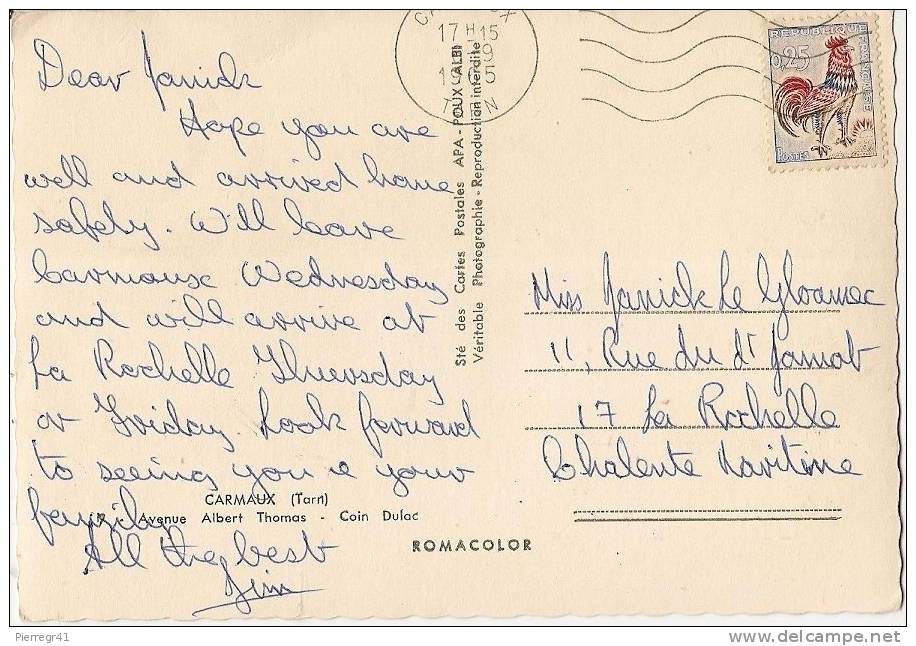 Dear Janick
Hope you are
well and arrived home
safely. Will leave
Carmause Wednesday
and will arrive at
La Rochelle Thursday
or Friday. Look forward
to seeing you & your
family
All the best
Jim
CARMAUX (Tarn)
Avenue Albert Thomas - Coin Dulac
ROMACOLOR
Sté des Cartes Postales APA - POUX (ALBI
Véritable Photographie - Reproduction interdite
17 H 15
REPUBLIQUE FRANÇAISE
0,25
POSTES
Miss Janick Le Gloamec
11, Rue du dr Jamot
17 La Rochelle
Chalente Maritine
Pierregr41
www.delcampe.net